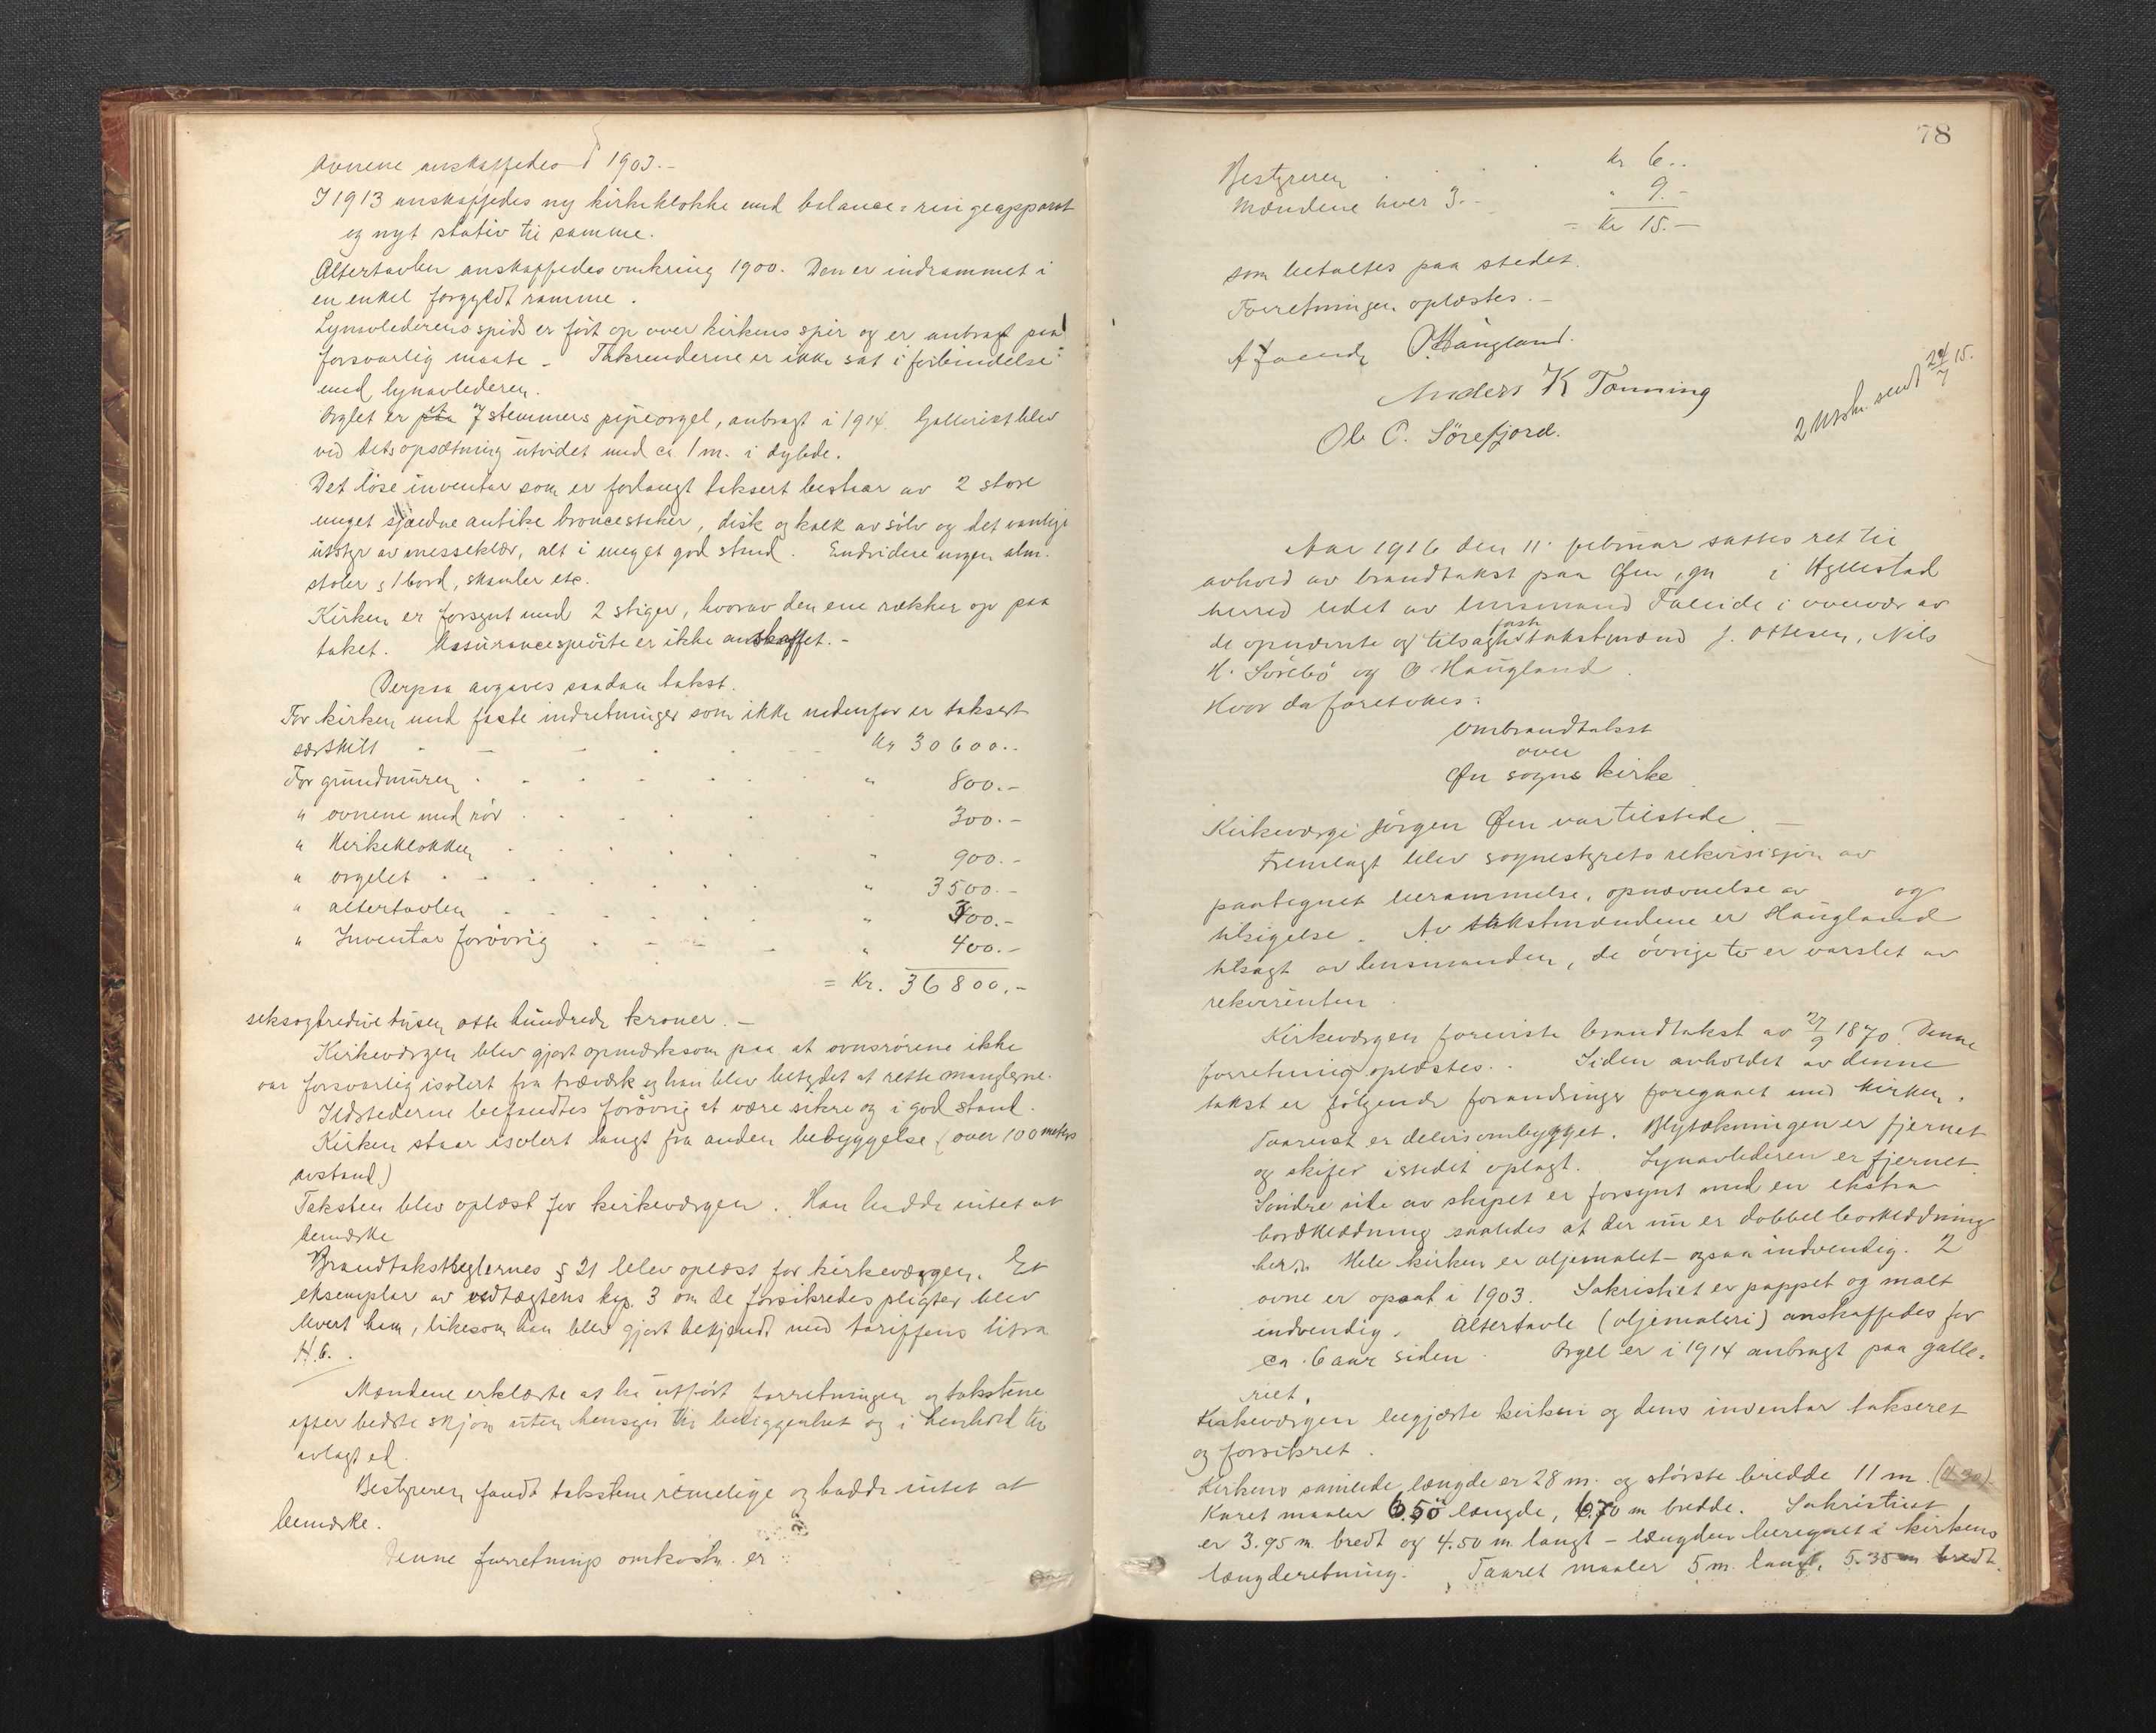 Ovnene anskaffedes i 1903.-
I 1913 anskaffedes ny kirkeklokke med balance = ringeapparat
og nyt stativ til samme.
Altertavlen anskaffedes omkring 1900. Den er indrammet i
en enkel forgyldt ramme.
Lynavlederens spids er ført op over kirkens spir og er anbragt paa
forsvarlig maate - Takrenderne er ikke sat i forbindelse
med lynavlederen.
Orglet er et 7 stemmers pipeorgel, anbragt i 1914. Galleriet blev
ved dets opsætning utvidet med ca. 1 m. i dybde.
Det løse inventar som er forlangt taksert bestaar av 2 store
meget sjældne antike broncestaker, disk og kalk av sølv og det vanlige
utstyr av messeklær, alt i meget god stand. Endvidere nogen alm.
stoler, 1 bord, skamler etc.
Kirken er forsynt med 2 stiger, hvorav den ene rækker op paa
taket. Assurancesprøite er ikke anskaffet.-
Derpaa avgaves saadan takst.
For kirken med faste indretninger som ikke nedenfor er taksert
særskilt Kr 30600..
For grundmuren " 800.-
" ovnene med rør 300.-
" Kirkeklokken " 900.-
" orgelet " 3500.-
" altertavlen " 300.-
" Inventar forøvrig " 400.-
= Kr. 36800.-
seksogtredive tusen otte hundrede kroner.-
Kirkeværgen blev gjort opmerksom paa at ovnsrørene ikke
var forsvarlig isolert fra træværk og han blev betydet at rette manglerne.
Ildstederne befandtes forøvrig at være sikre og i god stand.
Kirken staar isolert langt fra anden bebyggelse (over 100 meters
avstand)
Taksten blev oplæst for kirkeværgen. Han hadde intet at
bemerke
Brandtakstreglernes § 21 blev oplæst for kirkeværgen. Et
eksemplar av vedtægtens kap. 3 om de forsikredes pligter blev
levert ham, likesom han blev gjort bekjendt med tariffens litra
H.6.
Mændene erklærte at ha utført forretningen og takstene
efter bedste skjøn uten hensyn til beliggenhet og i henhold til
avlagt ed.
Bestyreren fandt takstene rimelige og hadde intet at
bemerke.
Denne forretnings omkostn. er
78
Bestyreren Kr 6..
Mændene hver 3.- " 9.-
= Kr 15.-
som betaltes paa stedet.
Forretningen oplæstes.-
A Falleide O Haugland.
Anders K Tonning
Ole O. Sørefjord.
2 utskr. sendt 24/7 15.
Aar 1916 den 11. februar sattes ret til
avhold av brandtakst paa Øen, gn i Hyllestad
herred ledet av lensmand Falleide i overvær av
de opnævnte og tilsagte fash takstmænd J. Ottesen, Nils
H. Sørebø og O Haugland.
Hvor da foretokes:
Ombrandtakst
over
Øn sogns kirke
Kirkeværge Jørgen Øen var tilstede.-
Fremlagt blev sognestyrets rekvisisjon av
paategnet berammelse, opnævnelse av og
tilsigelse. Av takstmændene er Haugland
tilsagt av lensmanden, de øvrige to er varslet av
rekvirenten.
Kirkeværgen foreviste brandtakst av 27/9 1870. Denne
forretning oplæstes.. Siden avholdet av denne
takst er følgende forandringer foregaaet med kirken.
Taarnet er delvis ombygget. Blytækningen er fjernet
og skifer istedet oplagt. Lynavlederen er fjernet.
Søndre side av skipet er forsynt med en ekstra
bordklædning saaledes at der nu er dobbel bordklædning
her. Hele kirken er oljemalet - ogsaa indvendig. 2
ovne er opsat i 1903. Sakristiet er pappet og malt
indvendig. Altertavle (oljemaleri) anskaffedes for
ca. 6 aar siden. Orgel er i 1914 anbragt paa galle-
riet.
Kirkeværgen begjærte kirken og dens inventar takseret
og forsikret.
Kirkens samlede længde er 28 m. og største bredde 11 m.
Koret maaler 6.50 længde, 6.70 m bredde. Sakristiet
er 3.95 m. bredt og 4.50 m. langt - længden beregnet i kirkens
længderetning. Taaret maaler 5 m. langt, 5.35 m bredt.